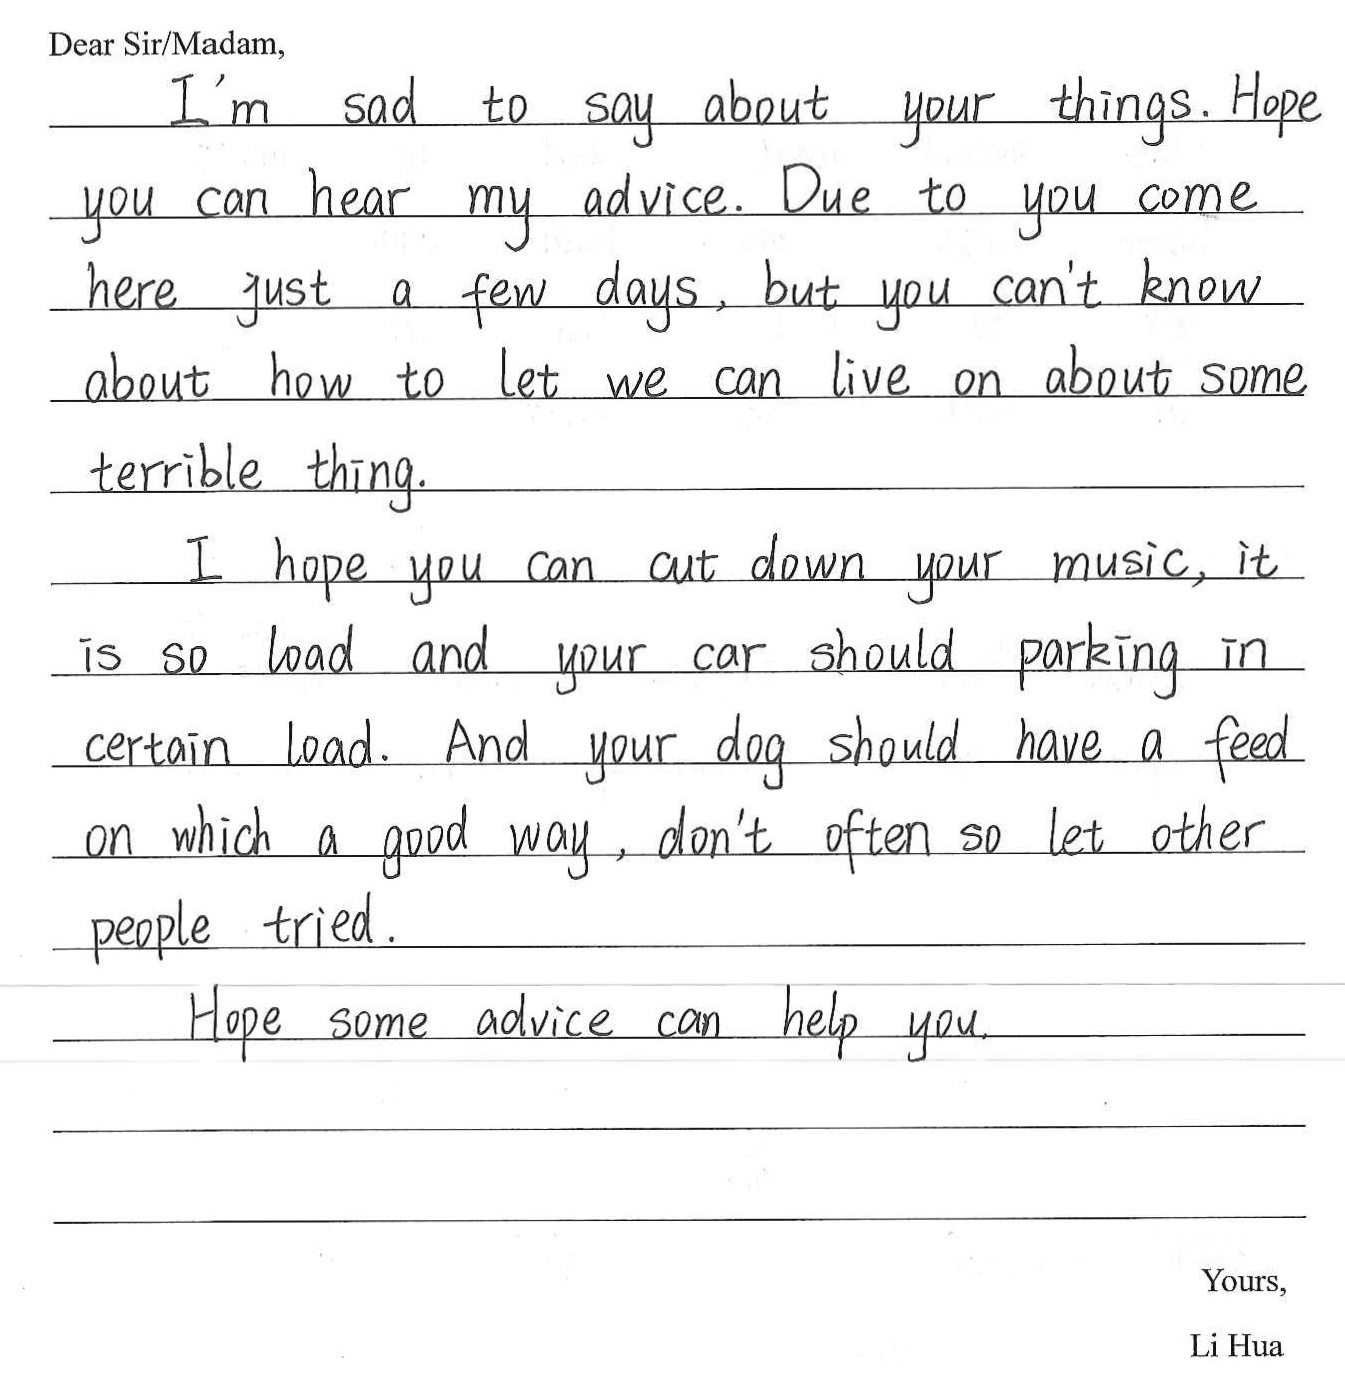 Dear Sir/Madam,
I'm sad to say about your things. Hope
you can hear my advice. Due to you come
here just a few days, but you can't know
about how to let we can live on about some
terrible thing.
I hope you can cut down your music, it
is so load and your car should parking in
certain load. And your dog should have a feed
on which a good way, don't often so let other
people tried.
Hope some advice can help you.
Yours,
Li Hua